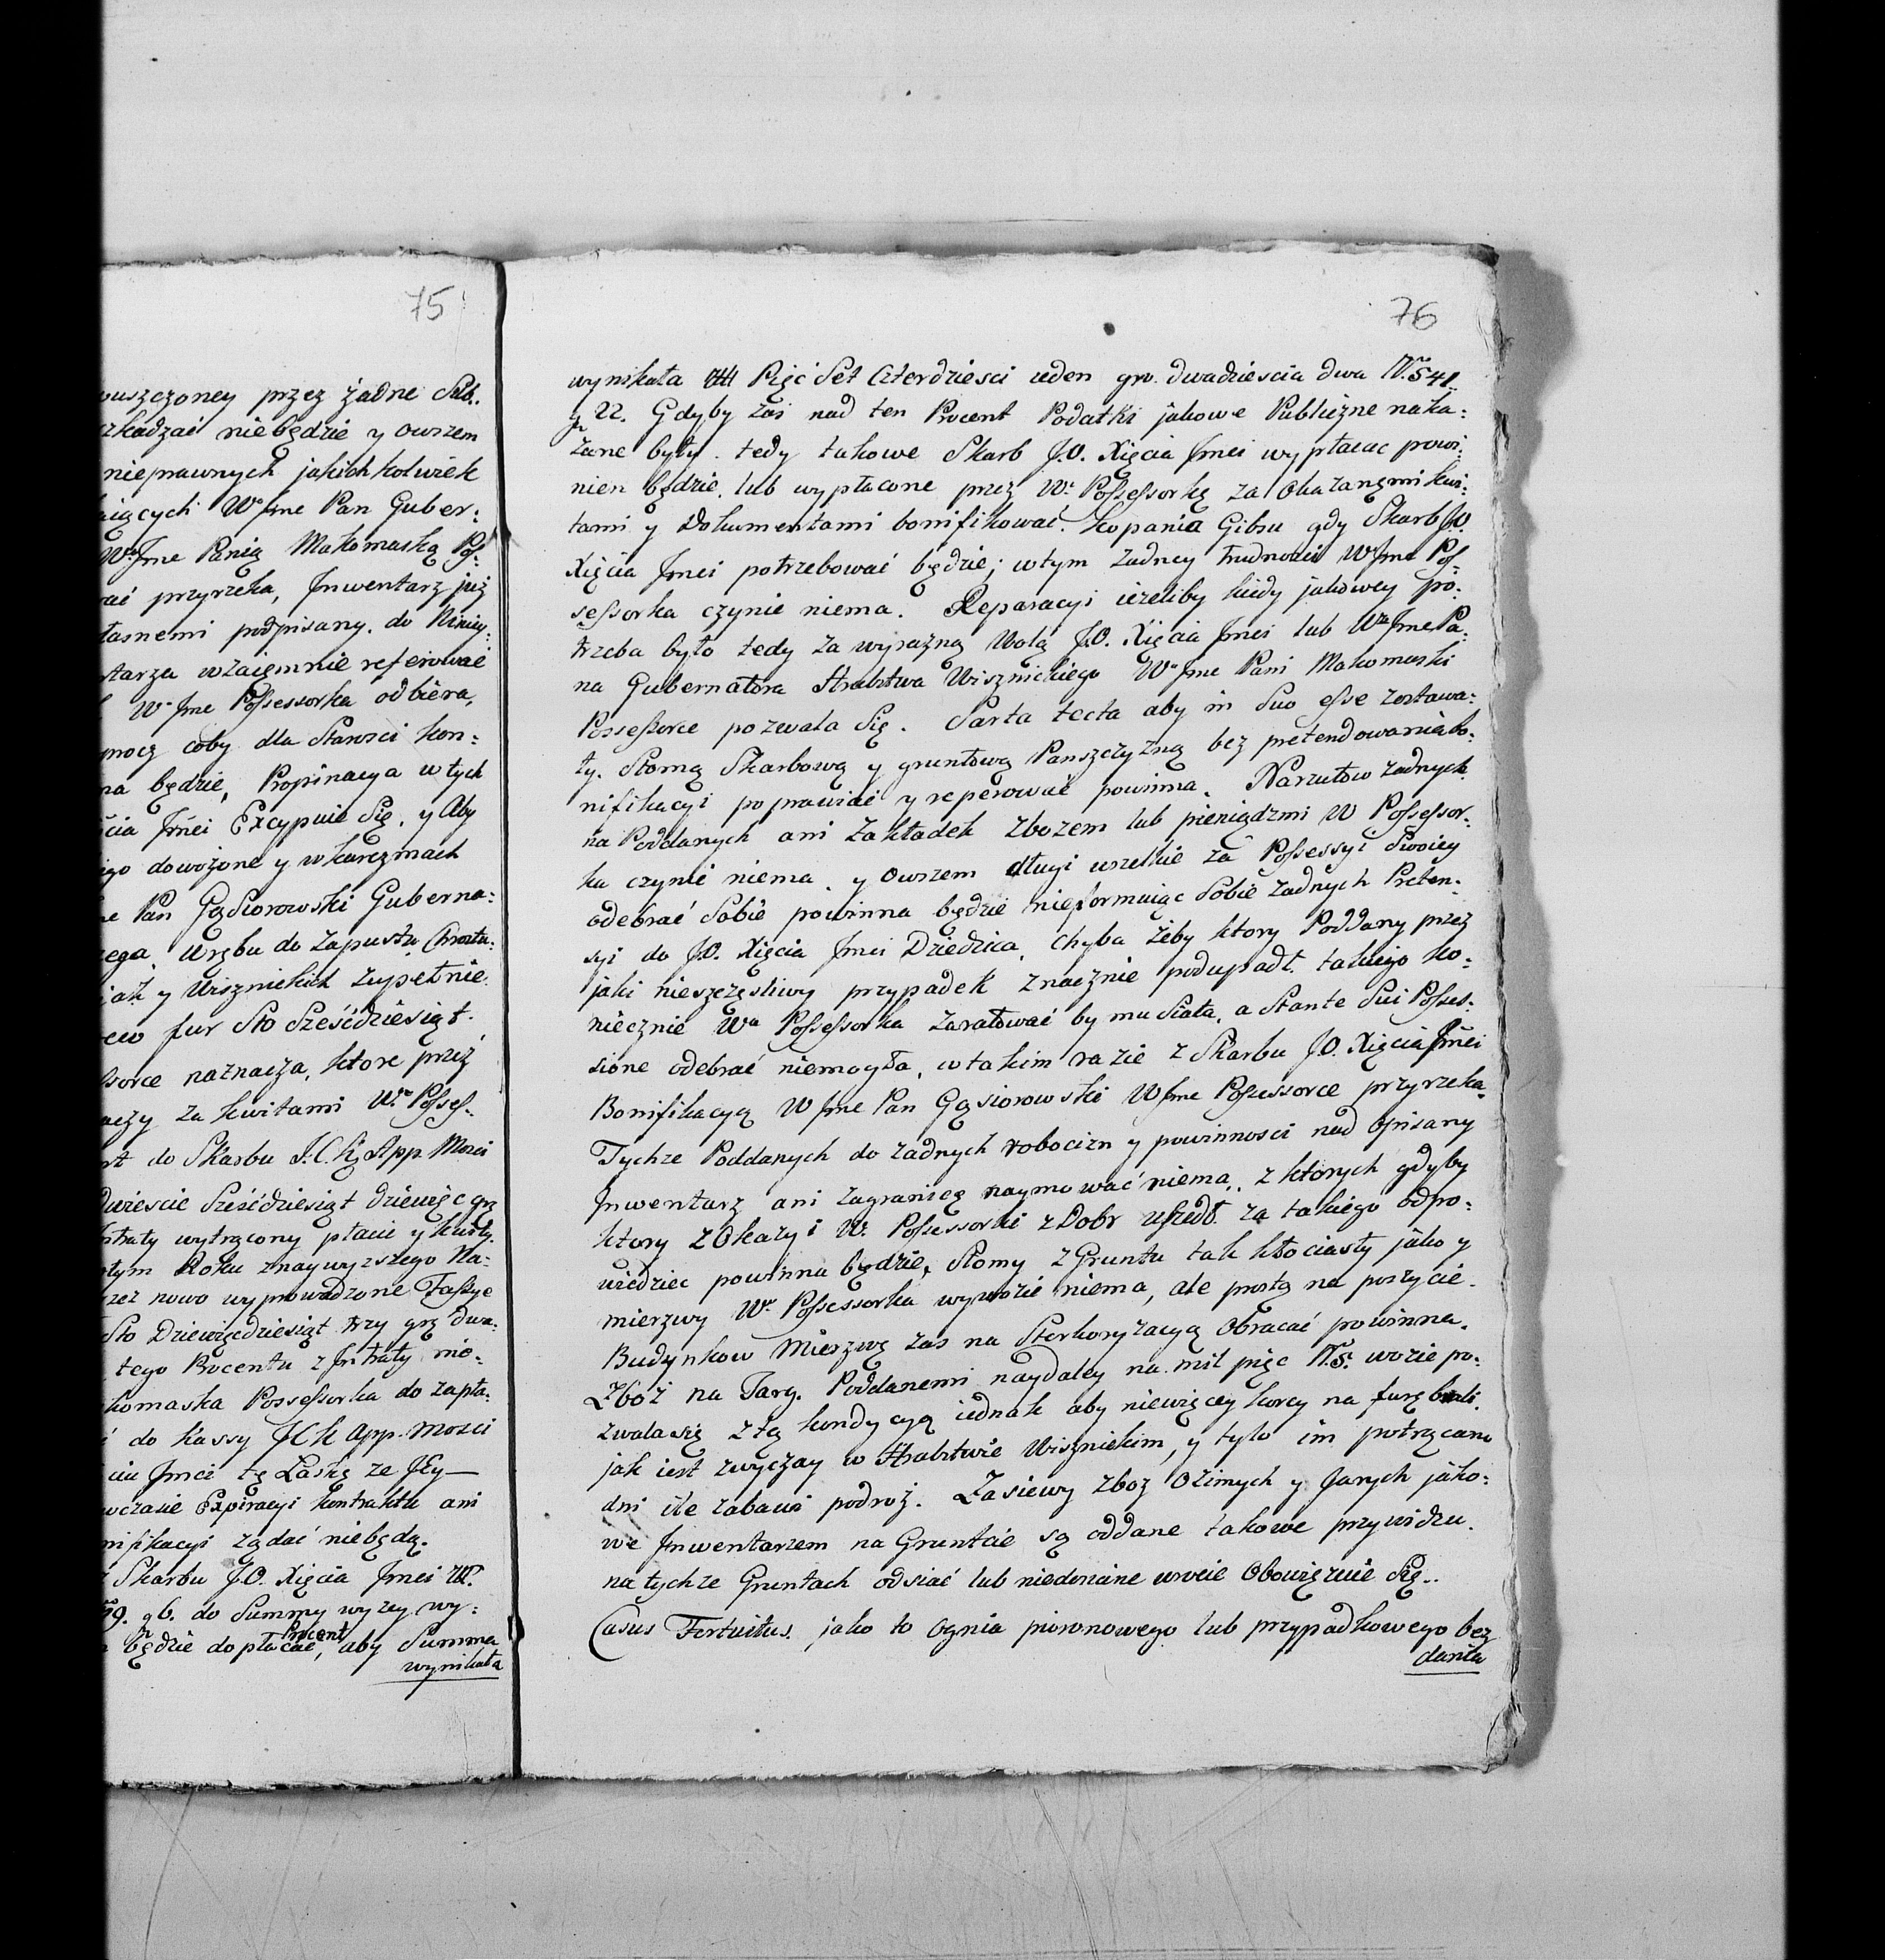 75
puszczoney przez żadne Sub:
zkadzać niebędzie y owszem
nieprawnych jakichkolwiek
iących W° Jmc Pan Guber:
W° Jmc Panią Makomaską Pos:
ać przyrzeka, Jnwentarz już
łasnemi podpisany. do
tarza wzaiemnie referować
W° Jmc Possessorka odbiera,
mocą coby dla Starosci kon:
na będzie, Propinacya w tych
cia Jmci Excypuie Się, y Aby
go dowożone y w karczmach
Pan Gąsiorowski Guberna:
ega. Wrębu do Zapustu
jak y Wisznickich zupełnie
ew fur Sto Sześćdziesiąt.
sorce naznacza, ktore przez
aczy za kwitami W° Posses.
do Skarbu J.C.K App Mosci
Dwiescie Sześćdziesiąt dziewięć grz
ntraty wytrącony płacić y kwity.
tym Roku z naywyzszego Na:
rzez nowo wyprowadzone Fassye
Sto Dziewięcdziesiąt trzy grz dwa:
tego Procentu z Jntraty nie:
komaska Possessorka do zapła:
do Kassy JCK App. Mosci
ciu Jmci tę Laskę ze JEy
wczasie Expiracyi Kontraktu ani
nifikacyi żądać niebędą.
Skarbu J.O. Xięcia Jmci
9. g 6. do Summy wyzey wy:
Procent
będzie dopłacać, aby Summa
wynikała
76
wynikała Pięć Set Czterdziesci ieden gro. dwadziescia dwa N° 541
g 22. Gdyby zas nad ten Procent Podatki jakowe Publiczne naka:
zane były. tedy takowe Skarb J.O. Xięcia Jmci wypłacac powi:
nien będzie, lub wypłacone przez W° Possessorkę za okazanymi kwi:
tami y Dokumentami bonifikować. Kopania Gibsu gdy Skarb J.O.
Xięcia Jmci potrzebować będzie; w tym żadney trudnosci W° Jmc Pos:
sessorka czynic niema. Reparacyi ieżeliby kiedy jakowey po:
trzeba było tedy za wyrazną Wolą J.O. Xięcia Jmci lub W° Jmc Pa:
na Gubernatora Hrabstwa Wisznickiego W° Jmc Pani Makomaski
Possessorce pozwala Się. Sarta tecta aby in Suo esse zostawa:
ły. Słomą Skarbową y gruntową Panszczyzną bez pretendowania bo:
nifikacyi poprawiać y reperować powinna. Narzutow żadnych
na Poddanych ani zakładek zbozem lub pieniądzmi W Possessor:
ka czynić niema. y Owszem długi wszelkie za Possessyi Swoiey
odebrać Sobie powinna będzie nieformuiąc Sobie żadnych Preten:
syi do J.O. Xięcia Jmci Dziedzica, Chyba żeby ktory Poddany przez
jaki nieszczęsliwy przypadek znacznie podupadł. takiego ko:
niecznie Wa Possessorka zaratować by musiała, a Stante Sui Posses:
sione odebrać niemogła, w takim razie z Skarbu J.O. Xięcia Jmci
Bonifikacyą W Jmc Pan Gąsiorowski W Jmc Possessorce przyrzeka.
Tychze Poddanych do żadnych robocizn y powinnosci nad Opisany
Jnwentarz ani zagranicę naymować niema. z ktorych gdyby
ktory z Okazyi W. Possessorki z Dobr uszedł za takiego odpo:
wiedziec powinna będzie, Słomy z Gruntu tak kłociasty jako y
mierzwy W° Possessorka wywozic niema, ale prostą na poszycie
Budynkow Mierzwę zas na Sterkoryzacyą Obracać powinna.
Zboż na Targ. Poddanemi naydaley na mil pięc N° 5. wozic po:
zwala się z tą kondycyą iednak aby niewięcey korcy na furę brali.
jak iest zwyczay w Hrabstwie Wisznickim, y tylo im potrącano
dni ile zabawi podroż. Zasiewy zboż Ozimych y Jarych jako:
we Jnwentarzem na Gruntcie są oddane takowe przywidzu.
na tychze Gruntach odsiać lub wrocie Obowięzuie Się..
Casus Fortuitus. jako to Ognia piorunowego lub przypadkowego bez
dania